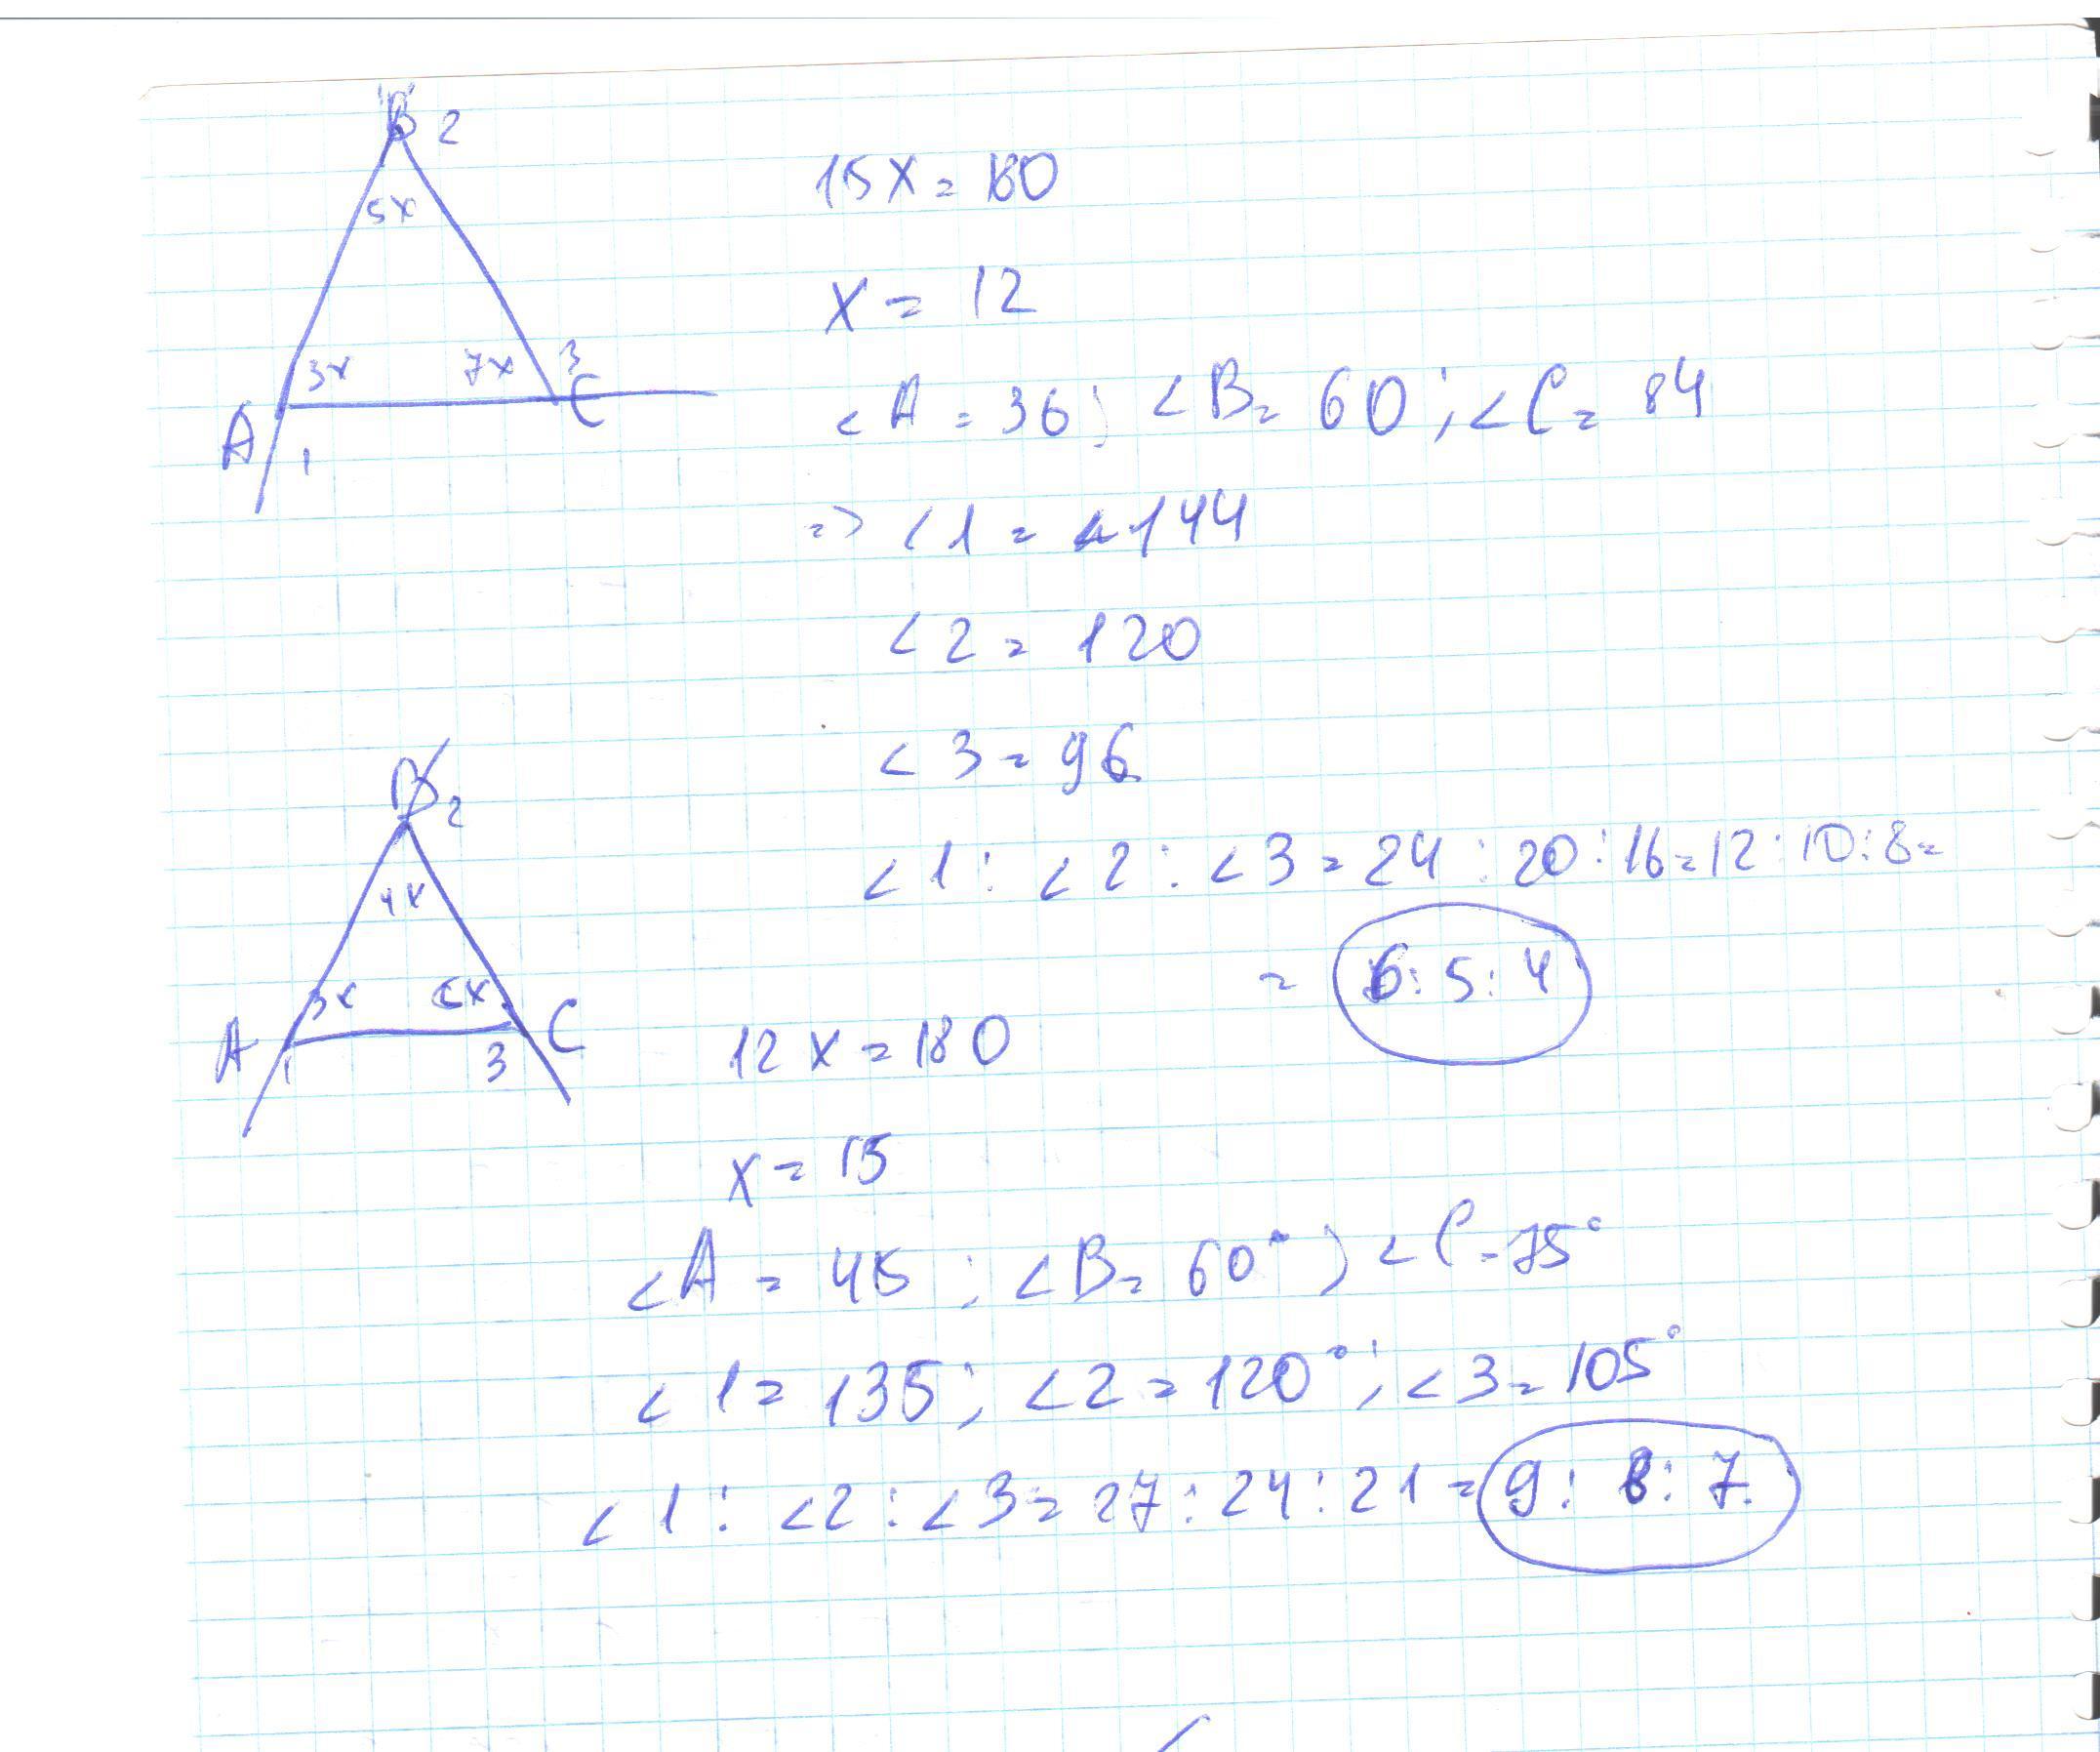 B 2
5x
3x 7x 3
A C
1
15x = 180
x = 12
<A = 36; <B = 60; <C = 84
=> <1 = 144
<2 = 120
<3 = 96
<1 : <2 : <3 = 24 : 20 : 16 = 12 : 10 : 8 =
= 6 : 5 : 4
B 2
4x
3x
A C
1 3
12x = 180
x = 15
<A = 45; <B = 60°; <C = 75°
<1 = 135; <2 = 120°; <3 = 105°
<1 : <2 : <3 = 27 : 24 : 21 = 9 : 8 : 7.